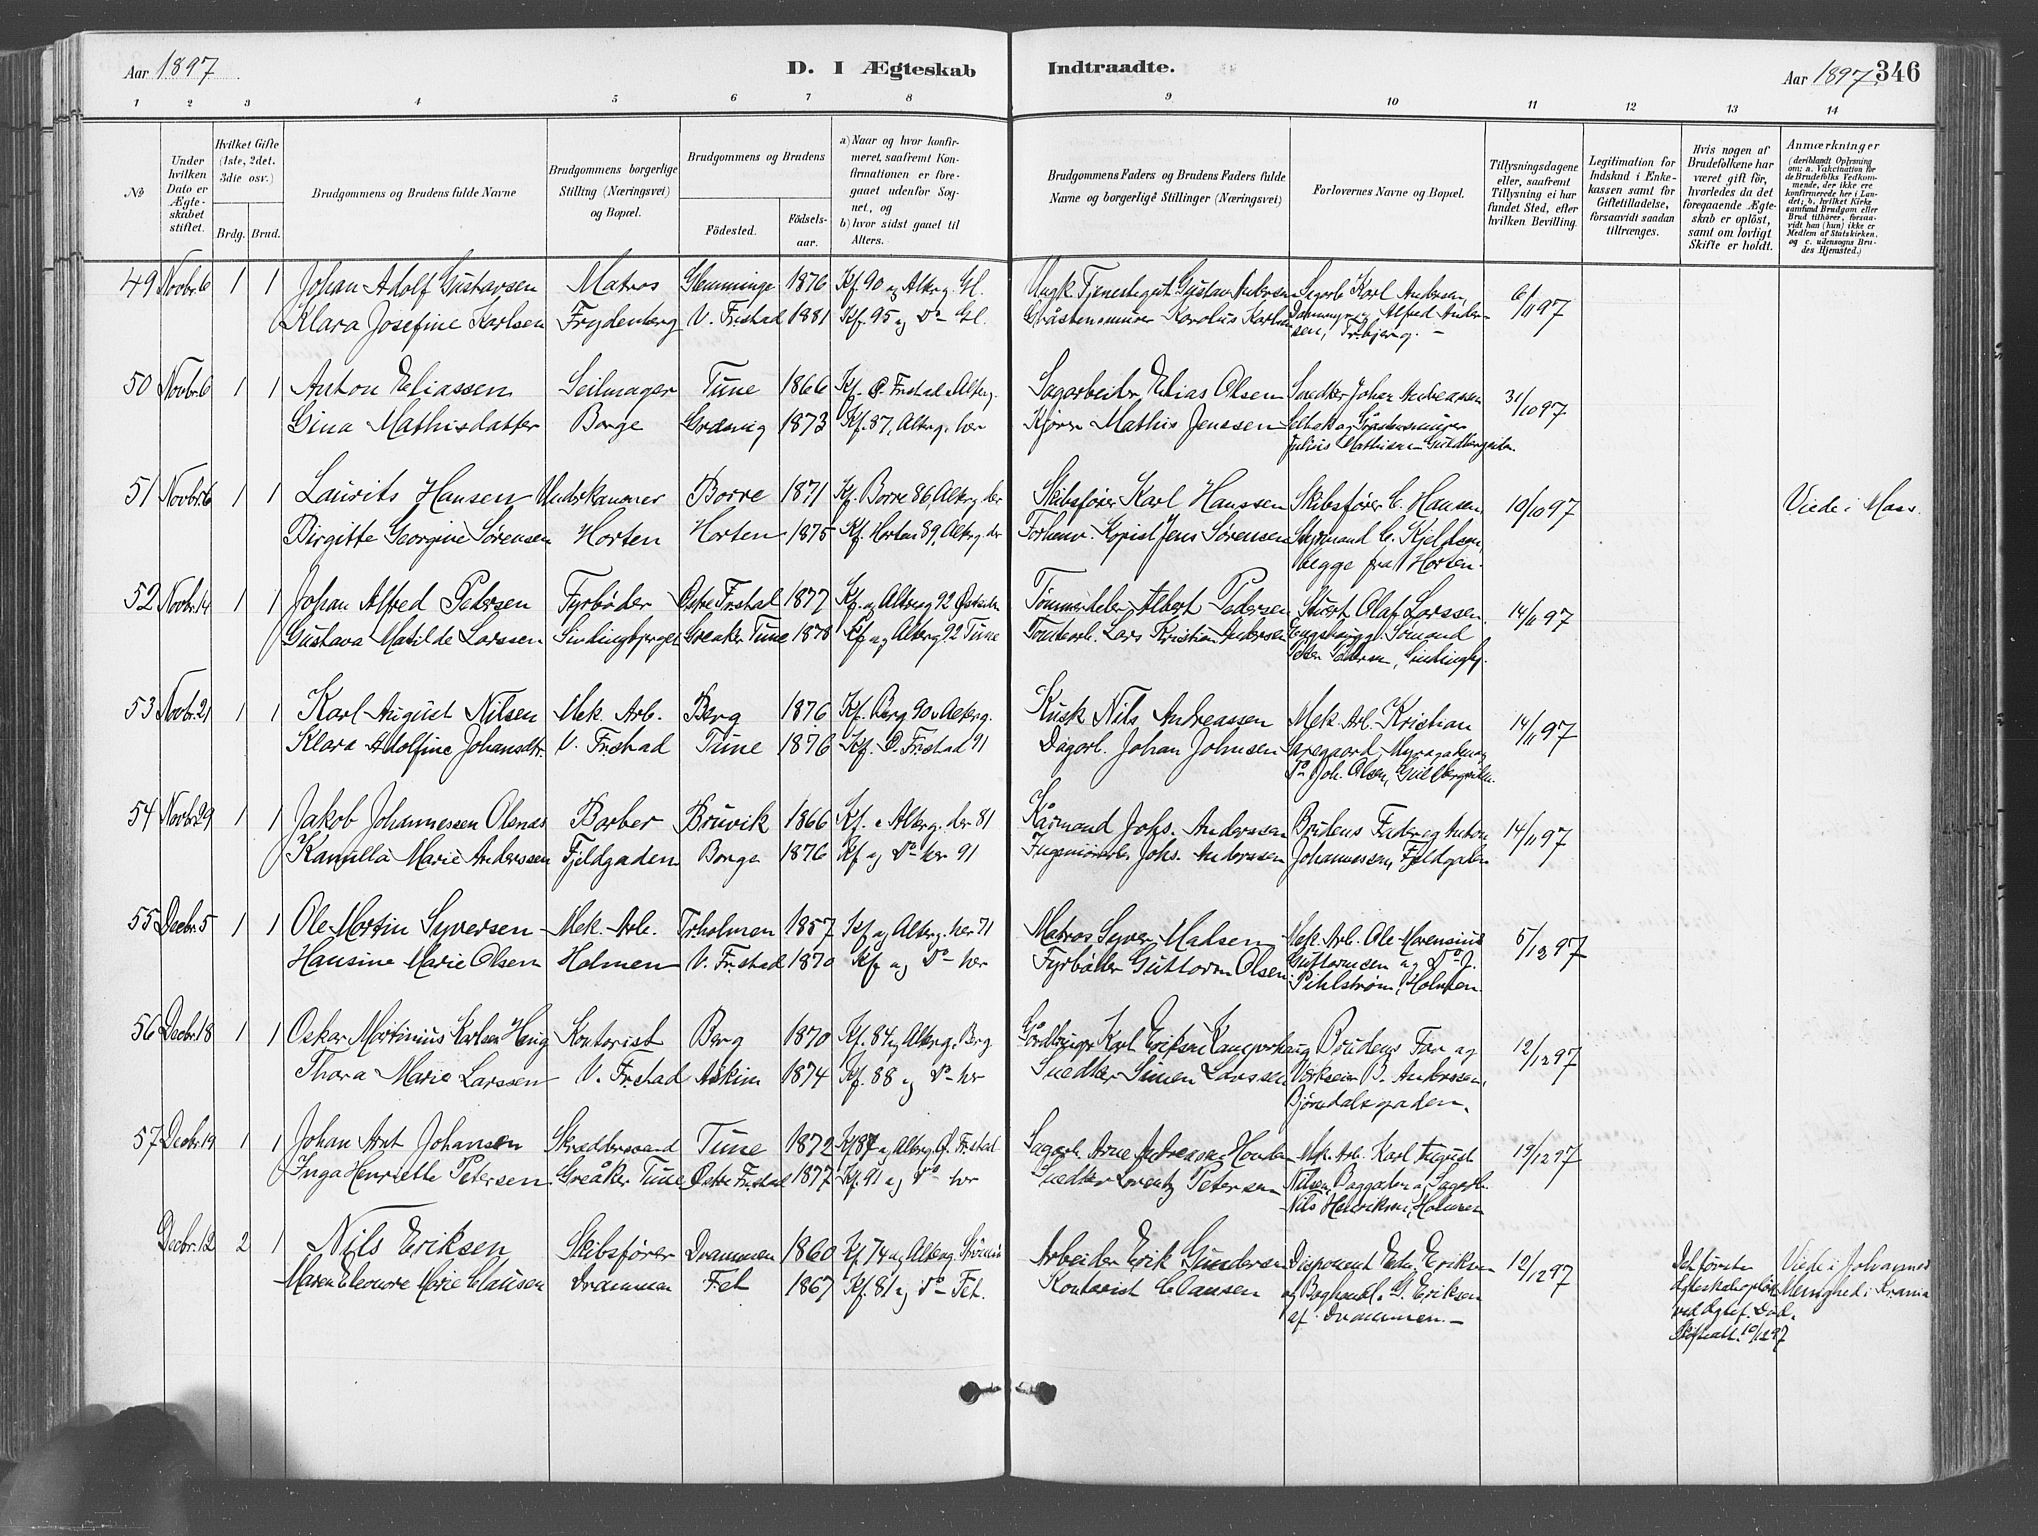 Aar 1897. D. I Ægteskab Indtraadte. Aar 1897. 346
1 2 3 4 5 6 7 8 9 10 11 12 13 14
№
Under hvilken Dato er Ægteskabet stiftet.
Hvilket Gifte (1ste, 2det, 3die osv.)
Brdg. Brud.
Brudgommens og Brudens fulde Navne
Brudgommens borgerlige Stilling (Næringsvei) og Bopæl.
Brudgommens og Brudens
Fødested. Fødselsaar.
a) Naar og hvor konfirmeret, saafremt Konfirmationen er foregaaet udenfor Sognet, og
b) hvor sidst gaaet til Alters.
Brudgommens Faders og Brudens Faders fulde Navne og borgerlige Stillinger (Næringsvei)
Forlovernes Navne og Bopæl.
Tillysningsdagene eller, saafremt Tillysning ei har fundet Sted, efter hvilken Bevilling.
Legitimation for Indskud i Enkekassen samt for Giftetilladelse, forsaavidt saadan tiltrænges.
Hvis nogen af Brudefolkene har været gift før, hvorledes da det foregaaende Ægteskab er opløst, samt om lovligt Skifte er holdt.
Anmærkninger
(deriblandt Oplysning om: a. Vaccination for de Brudefolks Vedkommende, der ikke ere konfirmerede her i Landet; b. hvilket Kirkesamfund Brudgom eller Brud tilhører, forsaavidt han (hun) ikke er Medlem af Statskirken, og c. udensogns Brudes Hjemsted.)
49 Novbr. 6 1 1 Johan Adolf Gustavsen Matros Glemminge 1876 Kf. 90 og Altrg. Gl. Ungk. Tjenestegut Gustav Andersen Sagarb. Karl Andersen, 6/11 97
Klara Josefine Karlsen Frydenberg V. Fr.stad 1881 Kf. 95 og Do Gl. Gråstensmurer Karolus Karlsen Alfred Ander-
sen, Trbjerg. –
50 Novbr. 6 1 1 Anton Eliassen Seilmager Tune 1866 Kf. Ø. Fr.stad Altrg. Sagarbeider Elias Olsen Snedker Johan Andreassen 31/10 97
Gina Mathisdatter Borge Gredsvig 1873 Kf. 87, Altrg. her Kjører Mathis Jenssen Selbak og Gråstensmurer
Julius Mathisen Guldbergsiden
51 Novbr. 6 1 1 Laurits Hansen Underkanoner Borre 1871 Kf. Borre 86, Altrg. der Skibsfører Karl Hanssen Skibsfører C. Hansen, 10/10 97 Viede i Moss.
Birgitte Georgine Sørensen Horten Horten 1875 Kf. Horten 89, Altrg. der Forhenv. Kopist Jens Sørensen Styrmand C. Kjeldsen,
begge fra Horten.
52 Novbr. 14 1 1 Johan Alfred Pedersen Fyrbøder Østre Fr.stad 1877 Kf. og Altrg 92 Tømmerdeler Albert Pedersen Stuert Olaf Larssen, 14/11 97
Gustava Matilde Larssen Sindingbjerget Greaker Tune 1878 Kf og Altrg 92 Tune Tomtearb. Lars Kristian Andersen Sømand
Peter Pedersen, Sindingbj.
53 Novbr. 21 1 1 Karl August Nilsen Mek. Arb. Berg 1876 Kf. Berg 90 Altrg. Kusk Nils Andreassen Mek. Arb. Kristian 14/11 97
Klara Adolfine Johansdtr. V. Fr.stad Tune 1876 Kf. Ø. Fr.stad 91 Dagarb. Johan Johnsen
Do Joh. Olsen, Guldbergsiden.
54 Novbr. 29 1 1 Jakob Johannessen Olsnæs Barber Bruvik 1866 Kf. Altrg. der 81 Kårmand Johs. Anderssen Brudens Fader og Anton 14/11 97
Kamilla Marie Anderssen Fjeldgaden Borge 1876 Kf og Do her 91 Johs. Anderssen Johannessen, Fjeldgaden
55 Decbr. 5 1 1 Ole Martin Syversen Mek. Arb. Trholmen 1857 Kf og Altrg. her 71 Matros Syver Madsen Mek. Arb. Ole Marensius 5/12 97
Hansine Marie Olsen Holmen V. Fr.stad 1870 Kf og Do her Fyrbøder Guttorm Olsen Guttormsen og Do J.
Pihlstrøm, Holmen.
56 Decbr. 18 1 1 Oskar Martinius Karlsen Haug Kontorist Berg 1870 Kf. 84 og Altrg. Berg Gårdbruger Karl Eriksen Brudens Far og 12/12 97
Thora Marie Larssen V. Fr.stad Askim 1874 Kf. 88 og Do her Snedker Simen Larssen Værkseier B. Anderssen,
Bjørndalsgaden.
57 Decbr. 19 1 1 Johan Ant. Johansen Skræddersvend Tune 1872 Kf 87 og Altrg. Ø. Fr.stad Sagarb. Arne Andreassen Mek. Arb. Karl August 19/12 97
Inga Henriette Petersen Greåker Tune Østre Fr.stad 1877 Kf. 91 og Do her Snedker Lorentz Petersen Nilsen, Baggaden og Sagarb.
Nils Henriksen, Holmen
Decbr. 12 2 1 Nils Eriksen Skibsfører Drammen 1860 Kf 74 og Altrg. Strømsø Arbeider Erik Gundersen Disponent Eriksen 12/12 97 Det første Viede i Johannes
Maren Eleonore Marie Clausen Drammen Fet 1867 Kf. 81 og Do Fet. Kontorist Clausen og Boghandl. G. Eriksen Ægteskab opløst Menighed i Krania
af Drammen. – ved Ægtef. Død.
Skifteatt. 10/12 97